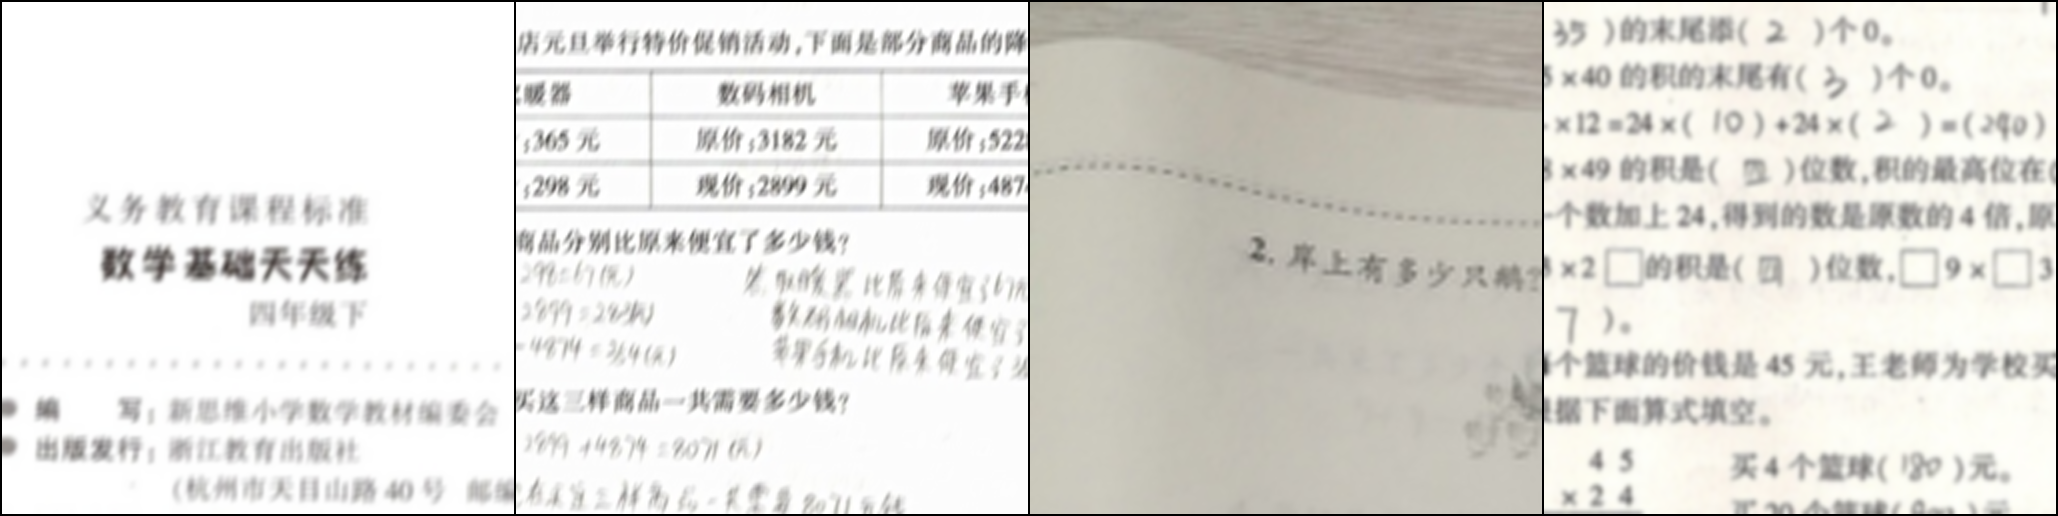 义务教育课程标准
数学基础天天练
四年级下
编 写：新思维小学数学教材编委会
出版发行：浙江教育出版社
(杭州市天目山路 40 号 邮编
店元旦举行特价促销活动,下面是部分商品的降
暖器 数码相机 苹果手
:365 元 原价:3182 元 原价:522
:298 元 现价:2899 元 现价:487
商品分别比原来便宜了多少钱?
298=67(元) 比原来便宜了67元
2899=283(元) 数码相机比原来便宜了
-4874=354(元) 苹果手机比原来便宜了
买这三样商品一共需要多少钱?
2899+4874=8071(元)
8071元钱
2. 岸上有多少只鹅?
35 )的末尾添( 2 )个 0。
×40 的积的末尾有( 3 )个 0。
×12=24×( 10 )+24×( 2 )=(290)
×49 的积是( 四 )位数,积的最高位在(
一个数加上 24,得到的数是原数的 4 倍,原
×2□的积是( 四 )位数,□9×□3
7 )。
个篮球的价钱是 45 元,王老师为学校买
据下面算式填空。
4 5 买 4 个篮球( 180 )元。
×2 4 买 20 个篮球(900)元